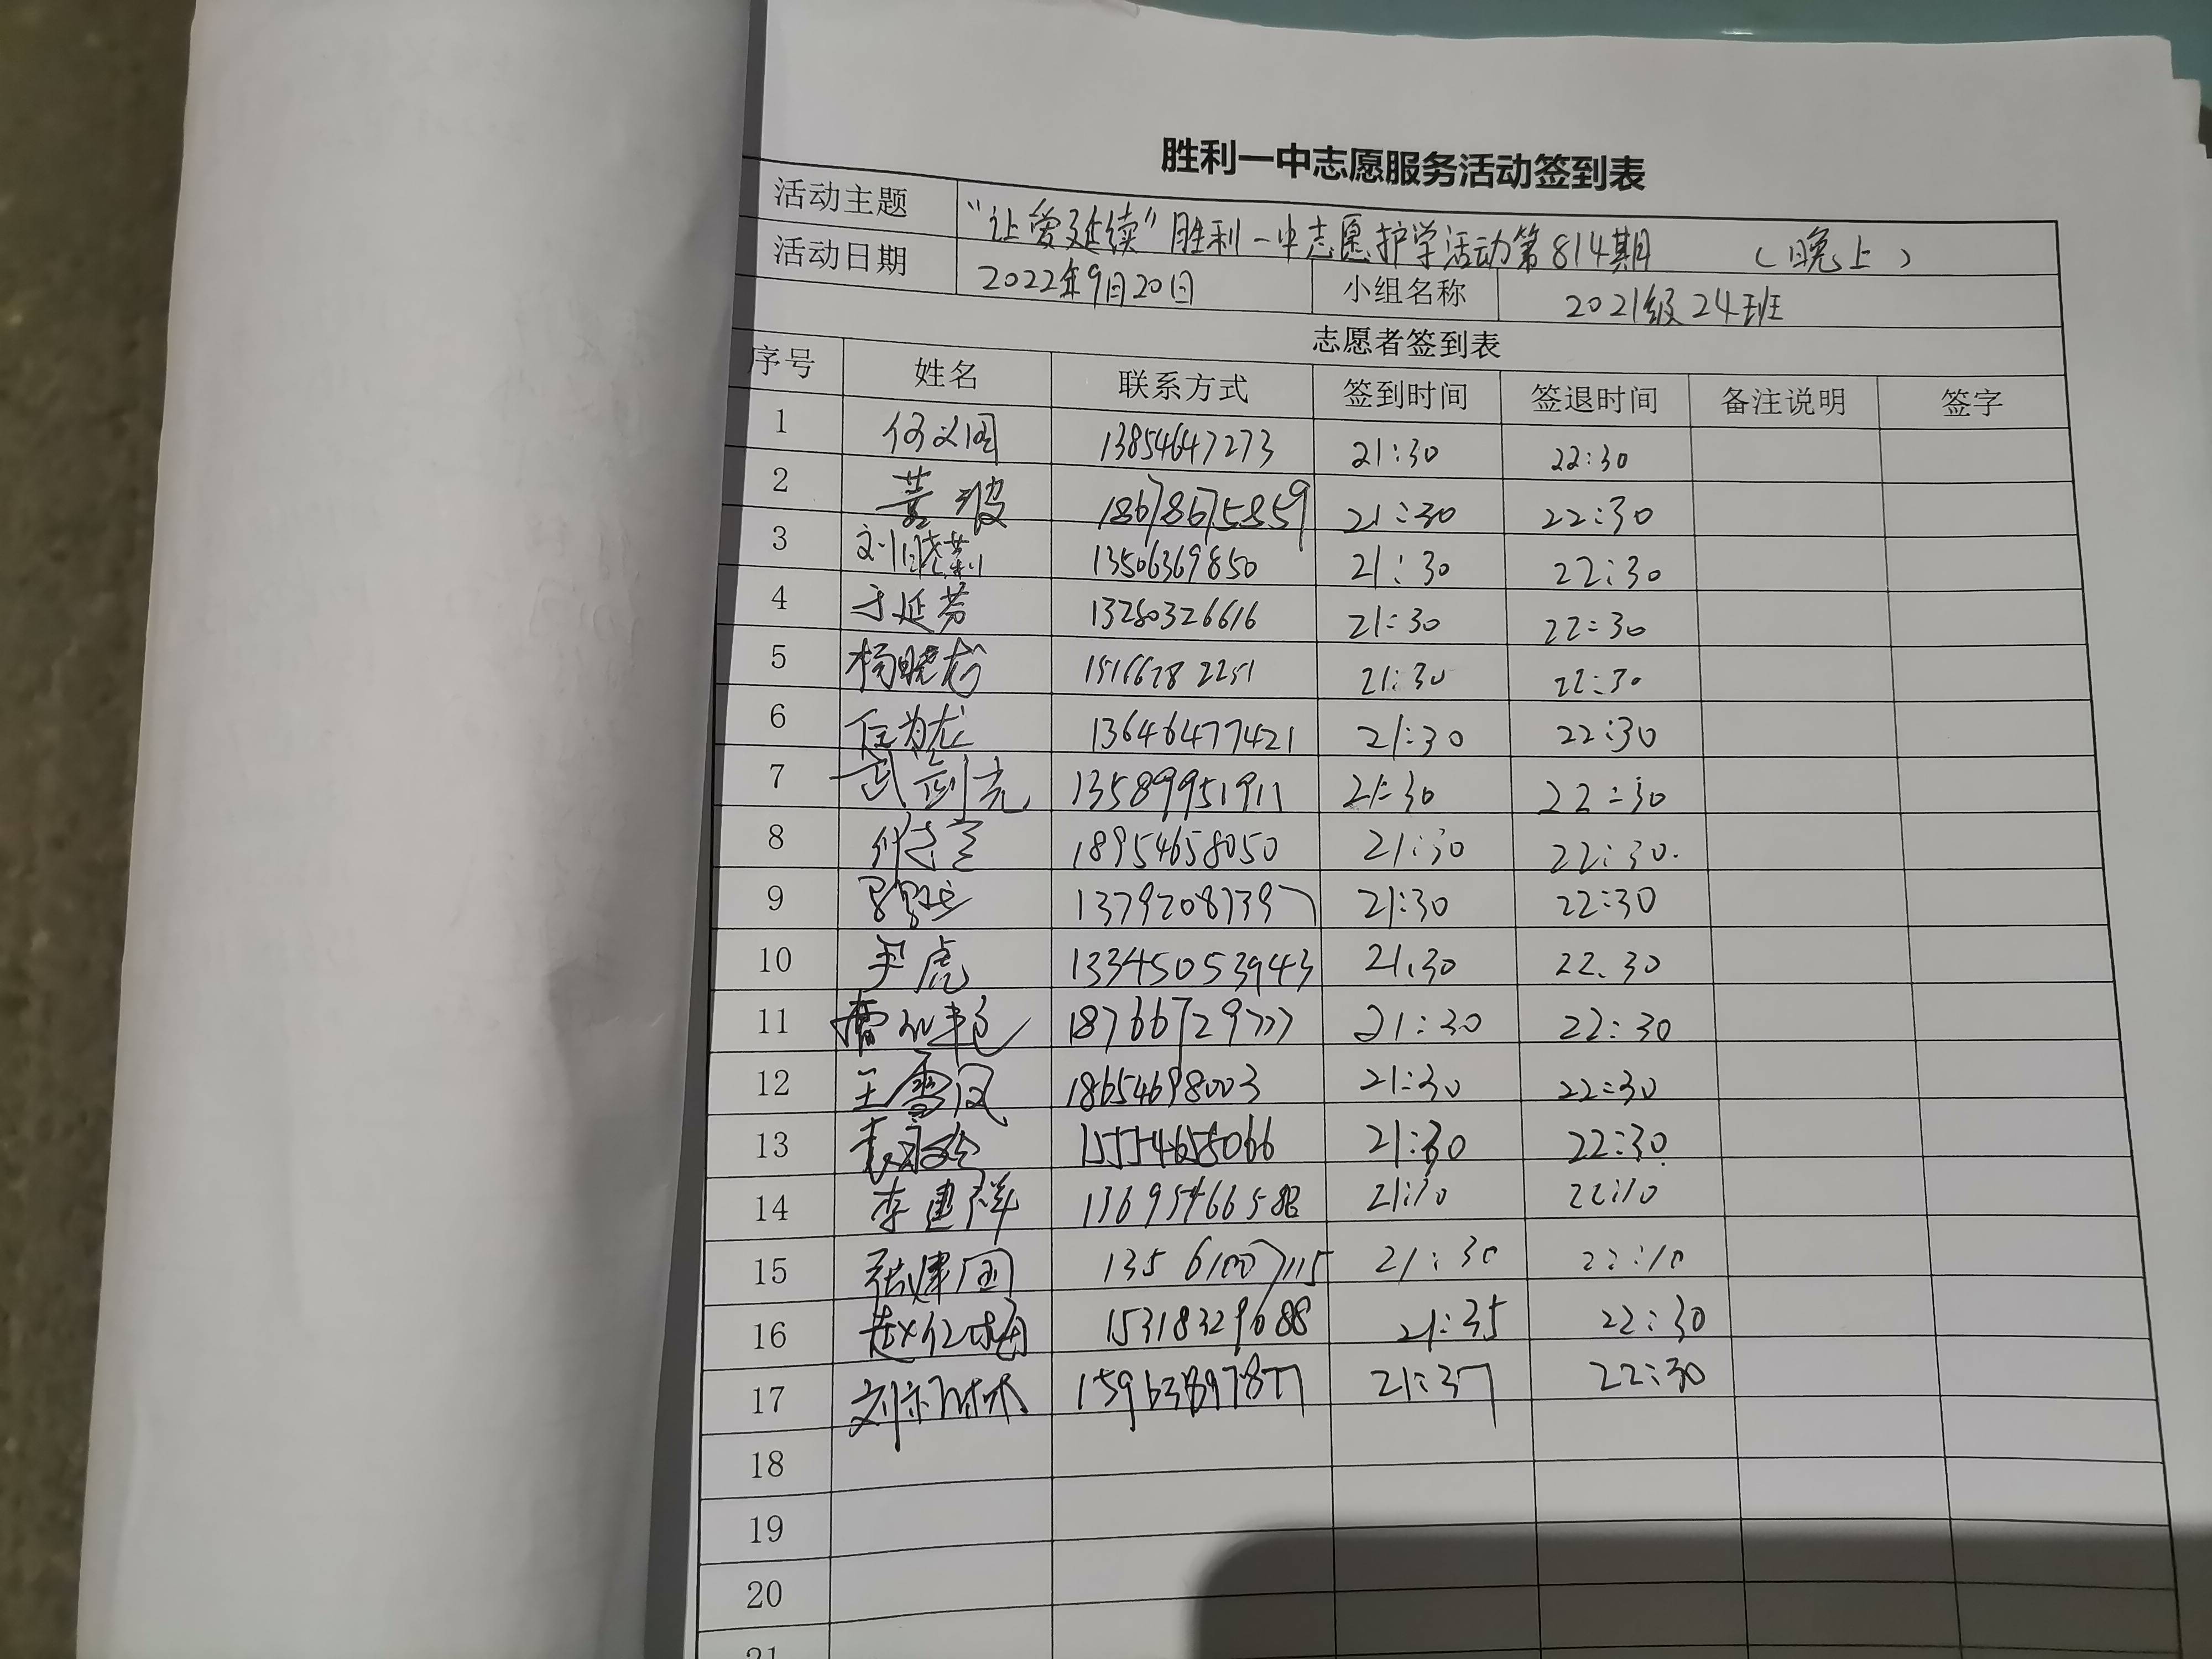 胜利一中志愿服务活动签到表
活动主题 “让爱延续”胜利一中志愿护学活动第814期 （晚上）
活动日期 2022年9月20日 小组名称 2021级24班
志愿者签到表
序号 姓名 联系方式 签到时间 签退时间 备注说明 签字
1 何文国 13854647273 21:30 22:30
2 董波 18678675859 21:30 22:30
3 刘晓莉 13506369850 21:30 22:30
4 于延芬 13280326616 21:30 22:30
5 杨晓龙 21:30 22:30
6 任为龙 13646477421 21:30 22:30
7 武剑光 13589951911 21:30 22:30
8 18954658050 21:30 22:30.
9 13792087397 21:30 22:30
10 虎 13345053943 21.30 22.30
11 18766729777 21:30 22:30
12 王雪凤 18654698003 21:30 22:30
13 15554658066 21:30 22:30
14 李建群 21:30 22:30
15 张建国 13561007115 21:30 22:30
16 赵红梅 15318329688 21:35 22:30
17 15963897877 21:37 22:30
18
19
20
21